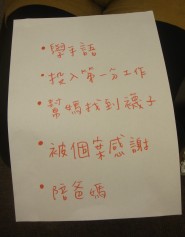 • 學手語
• 投入第一份工作
• 幫媽找到襪子
• 被個案感謝
• 陪爸媽